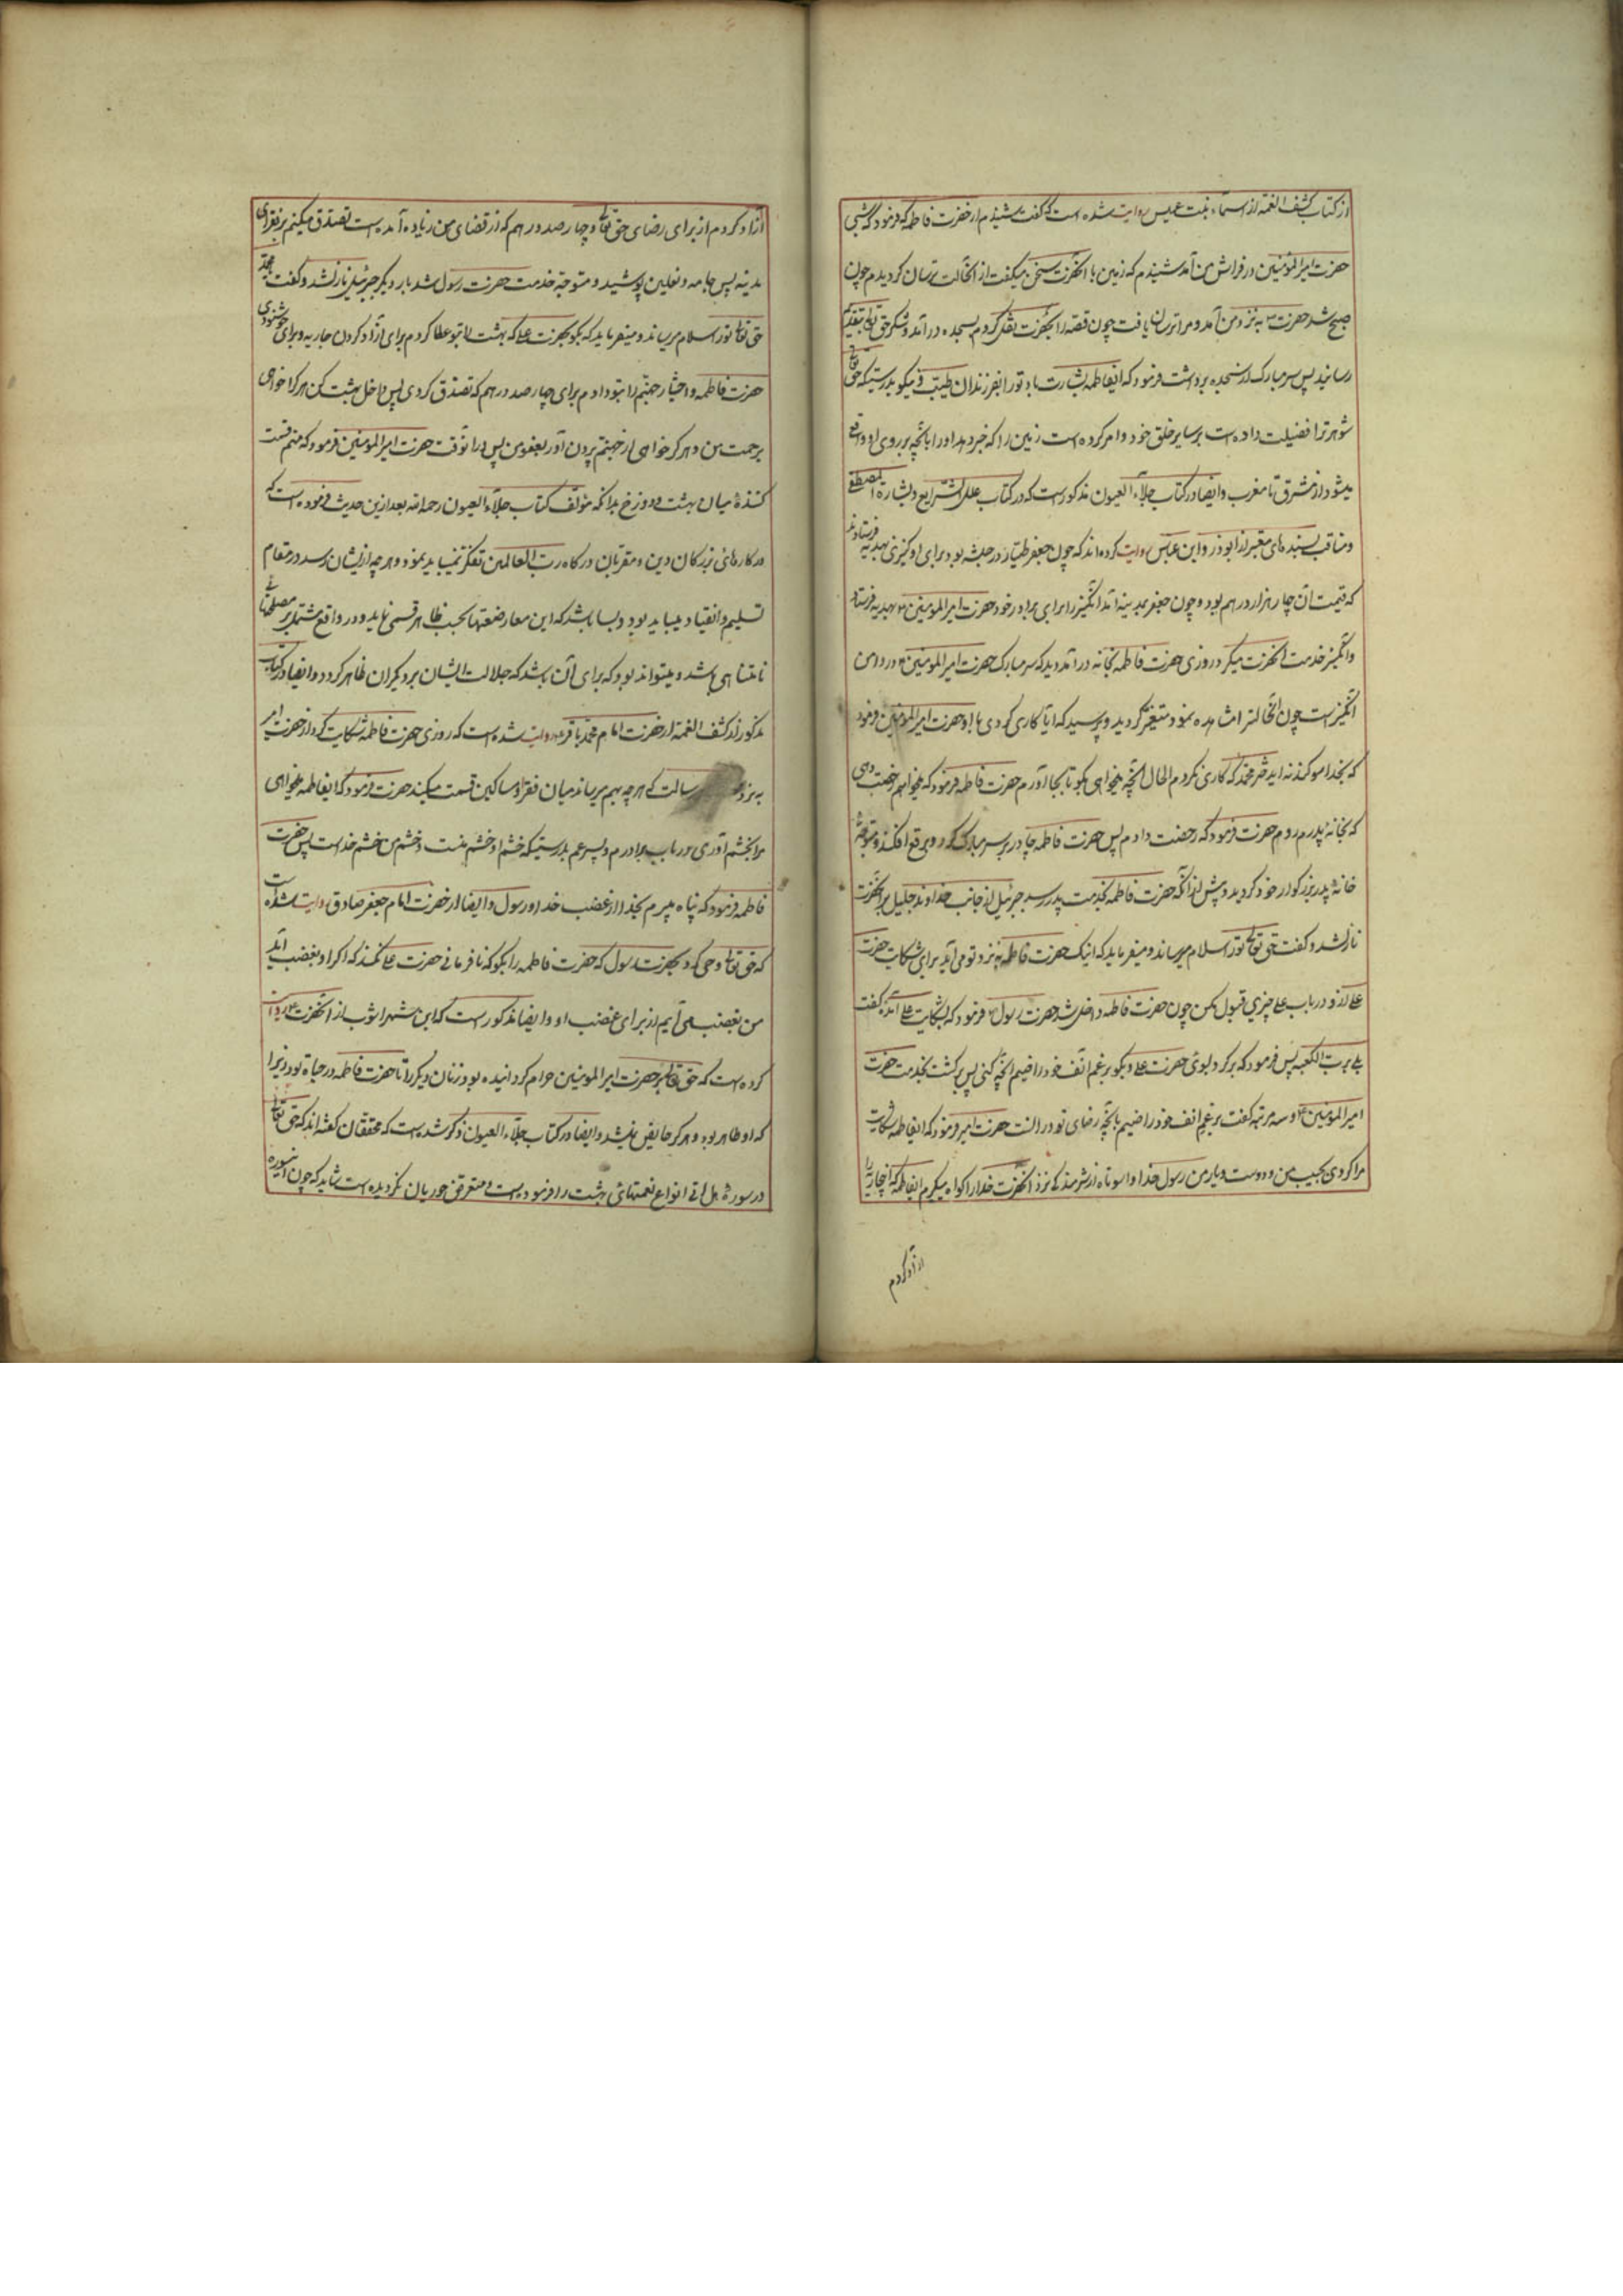 از کتاب کشف الغمه از اسماء بنت عمیس روایت شده است که گفت شنیدم از حضرت فاطمه که فرمود که شبی
حضرت امیرالمؤمنین در فراش من آمد شنیدم که زمین با آنحضرت سخن میگفت از آنحالت ترسان گردیدم چون
صبح شد حضرت به نزد من آمد و مرا ترسان یافت چون قصه را بحضرت نقل کردم بسجده در آمد و شکر حق تعالی بتقدیم
رسانید پس سر مبارک از سجده برداشت فرمود که ایفاطمه بشارت باد تو را بفرزندان طیب و نیکو بدرستیکه حق تعالی
شوهر ترا فضیلت داده است بر سایر خلق خود و امر کرده است زمین را که خبر دهد او را بآنچه بر روی او واقع
میشود از مشرق تا مغرب و ایضا در کتاب جلاء العیون مذکور است که در کتاب علل الشرایع و بشارة المصطفی
و مناقب بسندهای معتبر از ابوذر و ابن عباس روایت کرده‌اند که چون جعفر طیار در حبشه بود برای او کنیزی بهدیه فرستادند
که قیمت آن چهار هزار درهم بود و چون جعفر بمدینه آمد آنکنیز را برای برادر خود حضرت امیرالمؤمنین بهدیه فرستاد
و آنکنیز خدمت آنحضرت میکرد روزی حضرت فاطمه بخانه در آمد دید که سر مبارک حضرت امیرالمؤمنین در دامن
آنکنیز است چون آنحالترا مشاهده نمود متغیر گردید و پرسید که آیا کاری کردی با او حضرت امیرالمؤمنین فرمود
که بخدا سوگند نه ایدختر محمد که کاری نکردم الحال آنچه میخواهی بگو تا بجا آورم حضرت فاطمه فرمود که میخواهم رخصت دهی
که بخانه پدرم روم حضرت فرمود که رخصت دادم پس حضرت فاطمه چادر بر سر مبارک کرد و برقع افکند و متوجه
خانه پدر بزرگوار خود گردید و پیش از آنکه حضرت فاطمه بخدمت پدر رسد جبرئیل از جانب خداوند جلیل بر آنحضرت
نازل شد و گفت حق تعالی تو را سلام میرساند و میفرماید که اینک حضرت فاطمه به نزد تو می آید برای شکایت حضرت
علی از او در باب علی چیزی قبول مکن چون حضرت فاطمه داخل شد حضرت رسول فرمود که بشکایت علی آمده گفت
بلی برب الکعبه پس فرمود که برگرد بسوی حضرت علی و بگو برغم انف خود راضیم آنچه کنی پس برگشت بخدمت حضرت
امیرالمؤمنین و سه مرتبه گفت برغم انف خود راضیم بآنچه رضای تو در آنست حضرت امیر فرمود که ایفاطمه شکایت
مرا کردی بحبیب من و دوست و یار من رسول خدا واسوتاه از شرمندگی نزد آنحضرت خدا را گواه میگیرم ایفاطمه که آنجاریه را
آزاد کردم
آزاد کردم از برای رضای حق تعالی و چهار صد درهم که از قضای من زیاد آمده است تصدق میکنم بر فقرای
مدینه پس جامه و نعلین پوشید و متوجه خدمت حضرت رسول شد بار دیگر جبرئیل نازل شد و گفت یا محمد
حق تعالی تو را سلام میرساند و میفرماید که بگو بحضرت علی که بهشت را بتو عطا کردم برای آزاد کردن جاریه و برای خوشنودی
حضرت فاطمه و اختیار جهنم را بتو دادم برای چهار صد درهم که تصدق کردی پس داخل بهشت کن هر کرا خواهی
برحمت من و هر کرا خواهی از جهنم بیرون آور بعفو من پس در آنوقت حضرت امیرالمؤمنین فرمود که منم قسمت
کننده میان بهشت و دوزخ بدانکه مؤلف کتاب جلاء العیون رحمه الله بعد از این حدیث فرموده است که
در کارهای بزرگان دین و مقربان درگاه رب العالمین تفکر نمیباید نمود و هر چه از ایشان رسد در مقام
تسلیم و انقیاد میباید بود و بسا باشد که این معارضتها بحسب ظاهر قسمی نماید و در واقع مشتمل بر مصلحتهای
نامتناهی باشد و میتواند بود که برای آن باشد که جلالت ایشان بر دیگران ظاهر گردد و ایضا در کتاب
مذکور از کشف الغمه از حضرت امام محمد باقر روایت شده است که روزی حضرت فاطمه شکایت کرد از حضرت امیر
به نزد رسالت که هر چه بهم میرساند میان فقرا و مساکین قسمت میکند حضرت فرمود که ایفاطمه میخواهی
مرا بخشم آوری در باب برادرم و پسر عم بدرستیکه خشم او خشم منست و خشم من خشم خداست پس حضرت
فاطمه فرمود که پناه میبرم بخدا از غضب خدا و رسول و ایضا از حضرت امام جعفر صادق روایت شده است
که حق تعالی وحی کرد بحضرت رسول که حضرت فاطمه را بگو که نافرمانی حضرت علی نکند که اگر او بغضب آید
من بغضب می آیم از برای غضب او و ایضا مذکور است که ابن شهرآشوب از آنحضرت روایت
کرده است که حق تعالی بر حضرت امیرالمومنین حرام گردانیده بود زنان دیگر را تا حضرت فاطمه در حیاة بود زیرا
که او طاهر بود و هرگز حایض نمیشد و ایضا در کتاب جلاء العیون ذکر شده است که محققان گفته‌اند که حق تعالی
در سوره هل اتی انواع نعمتهای بهشت را فرموده است و متعرض حوریان نگردیده است شاید که چون این سوره